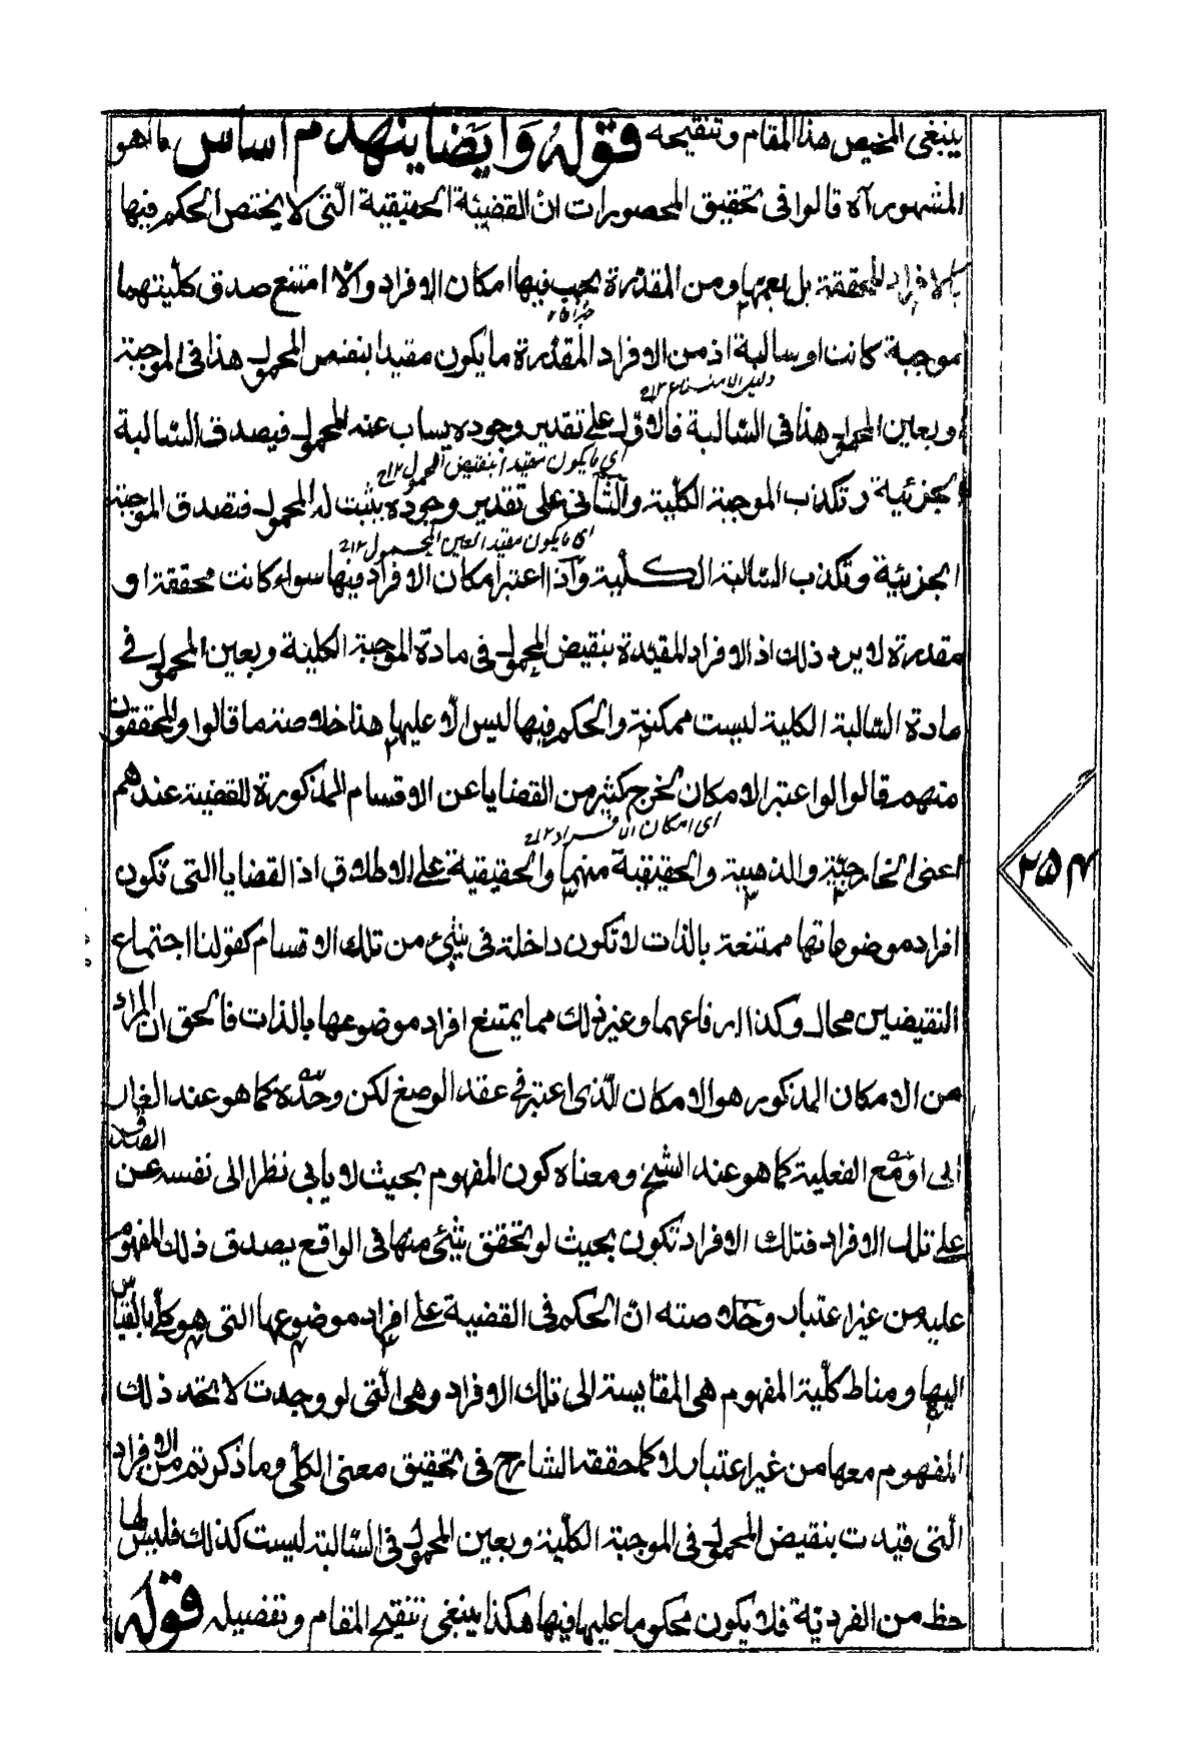 ينبغى تلخيص هذا المقام وتنقيحه قوله وايضا ينهدم اساس ما هو
المشهور آه قالوا فى تحقيق المحصورات ان القضية الحقيقية الّتى لا يختص الحكم فيها
بالافراد المحققة بل يعمها ومن المقدرة يجب فيها امكان الافراد والّا امتنع صدق كليتهما
موجبة كانت او سالبة اذ من الافراد المقدرة ما يكون مقيدا بنقيض المحمول هذا فى الموجبة
دليل الامتناع ١٢
وبعين المحمول هذا فى السّالبة فالاوّل على تقدير وجوده يسلب عنه المحمول فيصدق السّالبة
اى ما يكون مقيدا بنقيض المحمول ١٢
الجزئية وتكذب الموجبة الكلّية والثّانى على تقدير وجوده يثبت له المحمول فتصدق الموجبة
اى ما يكون مقيدا بعين المحمول ١٢
الجزئية وتكذب السّالبة الكلّية واذا اعتبر امكان الافراد فيها سواء كانت محققة او
مقدرة لا يرد ذلك اذ الافراد المقيدة بنقيض المحمول فى مادة الموجبة الكلية وبعين المحمول فى
مادة السّالبة الكلية ليست ممكنة والحكم فيها ليس الّا عليها هذا خلاصة ما قالوا والمحققون
منهم قالوا لو اعتبر الامكان لخرج كثير من القضايا عن الاقسام المذكورة للقضية عندهم
اى امكان الافراد ١٢
اعنى الخارجيّة والذهنية والحقيقية منهما والحقيقية على الاطلاق اذ القضايا التى تكون
افراد موضوعاتها ممتنعة بالذات لا تكون داخلة فى شئ من تلك الاقسام كقولنا اجتماع
النقيضين محال وكذا ارتفاعهما وغير ذلك مما يمتنع افراد موضوعها بالذات فالحق ان المراد
من الامكان المذكور هو الامكان الّذى اعتبر فى عقد الوضع لكن وحده كما هو عند الفار
ابى او مع الفعلية كما هو عند الشيخ ومعناه كون المفهوم بحيث لا يابى نظرا الى نفسه عن الصدق
على تلك الافراد فتلك الافراد تكون بحيث لو تحقق شئ منها فى الواقع يصدق ذلك المفهوم
عليه من غير اعتبار وخلاصته انّ الحكم فى القضية على افراد موضوعها التى هو كلّى بالقياس
اليها ومناط كلّية المفهوم هى المقايسة الى تلك الافراد وهى الّتى لو وجدت لاتحد ذلك
المفهوم معها من غير اعتبار لا كما حققه الشارح فى تحقيق معنى الكلّى وما ذكرتم من الافراد
الّتى قيدت بنقيض المحمول فى الموجبة الكلّية وبعين المحمول فى السّالبة ليست كذلك فليس لها
حظ من الفردية فلا يكون محكوما عليها فيها هكذا ينبغى تنقيح المقام وتفصيله قوله
٢٥٤